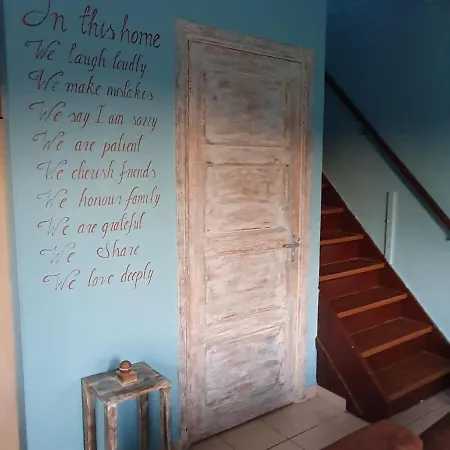 In this home
We laugh loudly
We make mistakes
We say I am sorry
We are patient
We cherish friends
We honour family
We are grateful
We Share
We love deeply